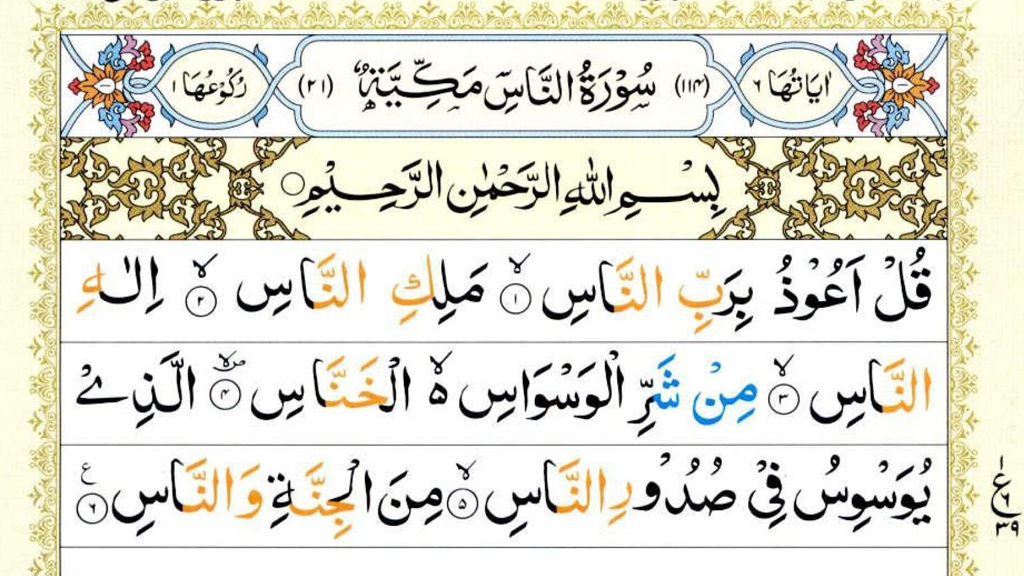 اٰيَاتُهَا ٦ (١١٤) سُوْرَةُ النَّاسِ مَكِّيَّةٌ (٢١) رُكُوْعُهَا ١
بِسْمِ اللّٰهِ الرَّحْمٰنِ الرَّحِيْمِ
قُلْ اَعُوْذُ بِرَبِّ النَّاسِ ۙ ١ مَلِكِ النَّاسِ ۙ ٢ اِلٰهِ
النَّاسِ ۙ ٣ مِنْ شَرِّ الْوَسْوَاسِ ەۙ الْخَنَّاسِ ۪ۙ ٤ الَّذِيْ
يُوَسْوِسُ فِيْ صُدُوْرِ النَّاسِ ۙ ٥ مِنَ الْجِنَّةِ وَالنَّاسِ ع ٦
ع ٦ ٣٩